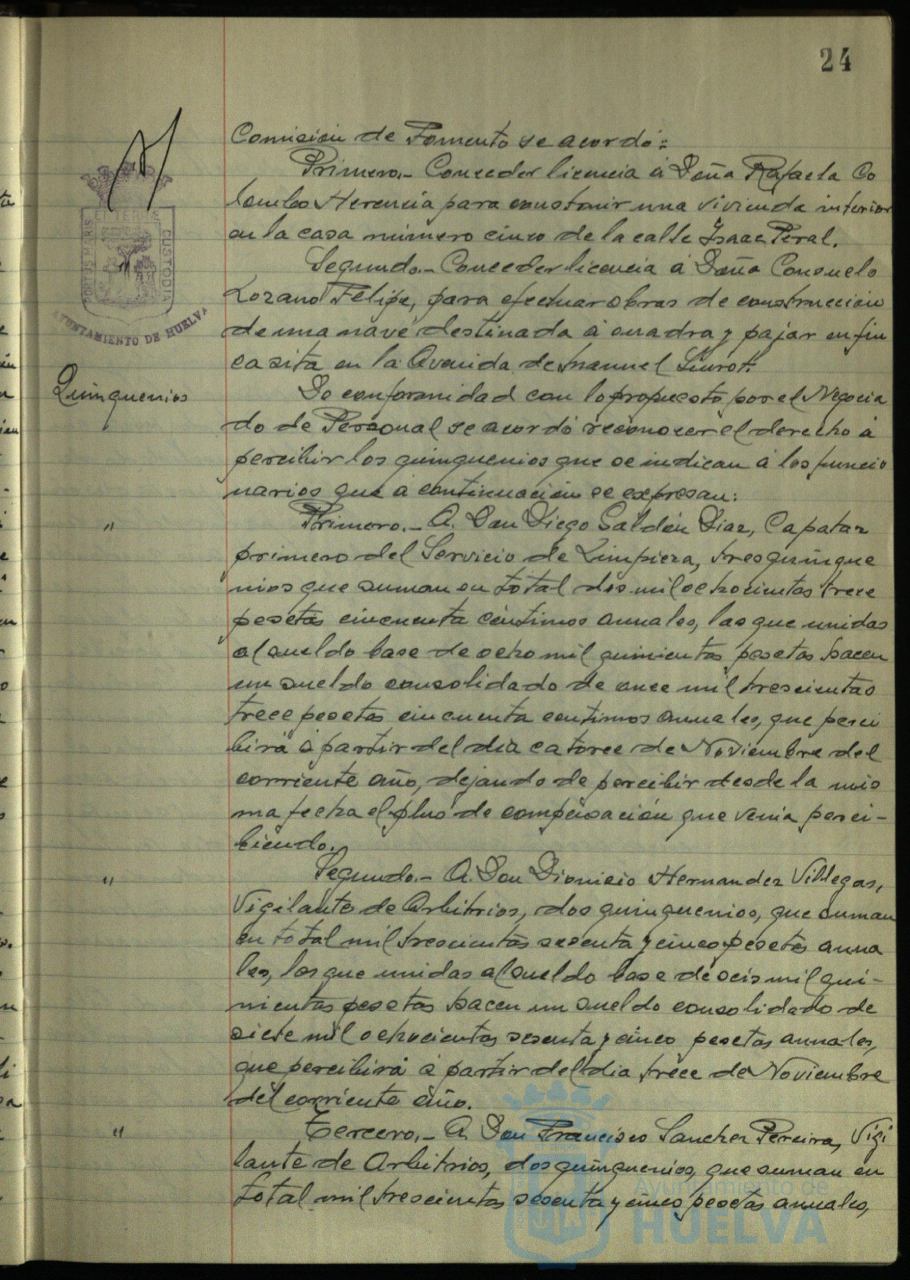 24
Comisión de Fomento se acordó:
Primero.- Conceder licencia á Doña Rafaela Co
lombo Herencia para construir una vivienda interior
en la casa número cinco de la calle Isaac Peral.
Segundo.- Conceder licencia á Doña Consuelo
Lozano Felipe, para efectuar obras de construcción
de una nave destinada á cuadra y pajar en fin
ca sita en la Avenida de Manuel Siurot.
PORTUS MARIS ET TERRE CUSTODIA
AYUNTAMIENTO DE HUELVA
Quinquenios
De conformidad con lo propuesto por el Negocia
do de Personal se acordó reconocer el derecho á
percibir los quinquenios que se indican á los funcio
narios que á continuación se expresan:
" Primero.- A Don Diego Galdén Diaz, Capataz
primero del Servicio de Limpieza, tres quinque
nios que suman en total dos mil ochocientas trece
pesetas cincuenta céntimos anuales, las que unidas
al sueldo base de ocho mil quinientas pesetas hacen
un sueldo consolidado de once mil trescientas
trece pesetas cincuenta centimos anuales, que perci
birá á partir del día catorce de Noviembre del
corriente año, dejando de percibir desde la mis
ma fecha el plus de compensación que venía perci-
biendo.
" Segundo.- A Don Dionisio Hernandez Villegas,
Vigilante de Arbitrios, dos quinquenios, que suman
en total mil trescientas sesenta y cinco pesetas anua
les, las que unidas al sueldo base de seis mil qui-
nientas pesetas hacen un sueldo consolidado de
siete mil ochocientas sesenta y cinco pesetas anuales,
que percibirá á partir del dia trece de Noviembre
del corriente año.
" Tercero.- A Don Francisco Sanchez Pereira, Vigi
lante de Arbitrios, dos quinquenios, que suman en
total mil trescientas sesenta y cinco pesetas anuales,
Ayuntamiento de
HUELVA